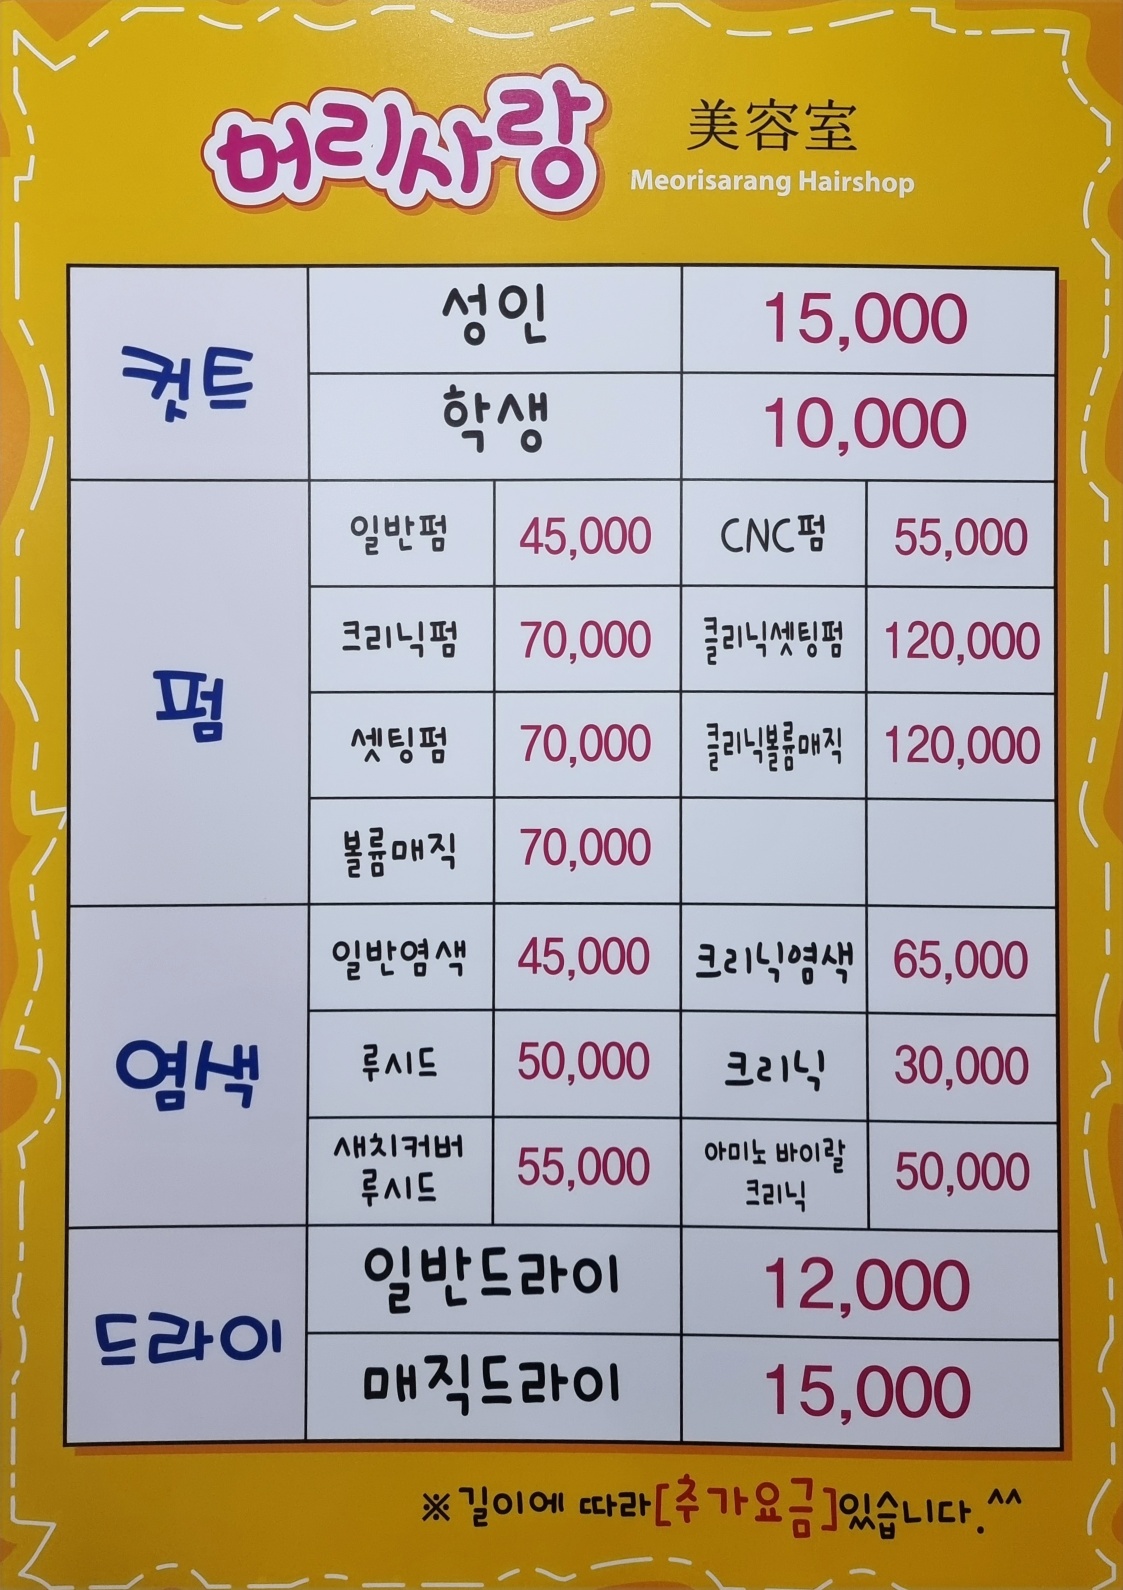 머리사랑
美容室
Meorisarang Hairshop
컷트
성인 15,000
학생 10,000
펌
일반펌 45,000 CNC펌 55,000
크리닉펌 70,000 클리닉셋팅펌 120,000
셋팅펌 70,000 클리닉볼륨매직 120,000
볼륨매직 70,000
염색
일반염색 45,000 크리닉염색 65,000
루시드 50,000 크리닉 30,000
새치커버
루시드
55,000
아미노 바이랄
크리닉
50,000
드라이
일반드라이 12,000
매직드라이 15,000
※길이에 따라[추가요금]있습니다.^^